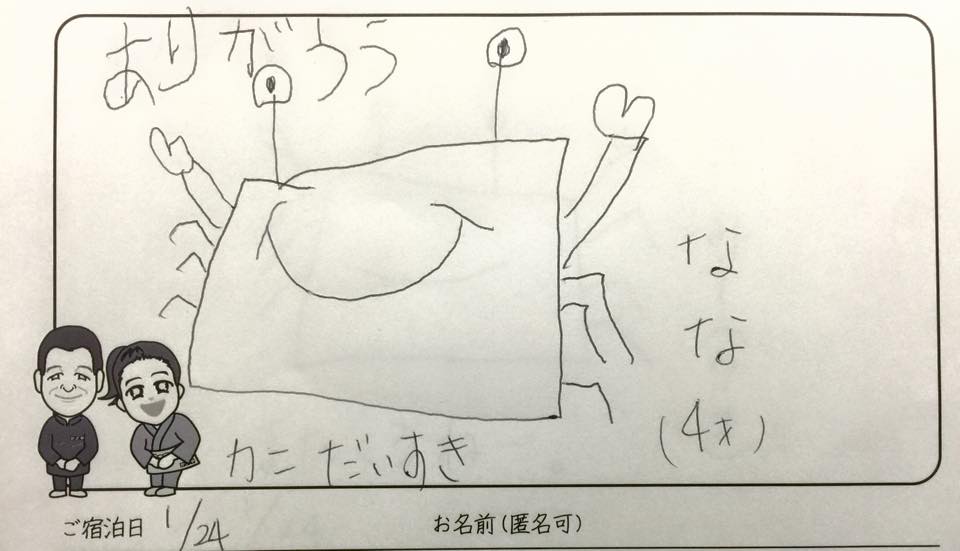 ありがろう
なな(4才)
カニだいすき
ご宿泊日 1/24
お名前(匿名可)